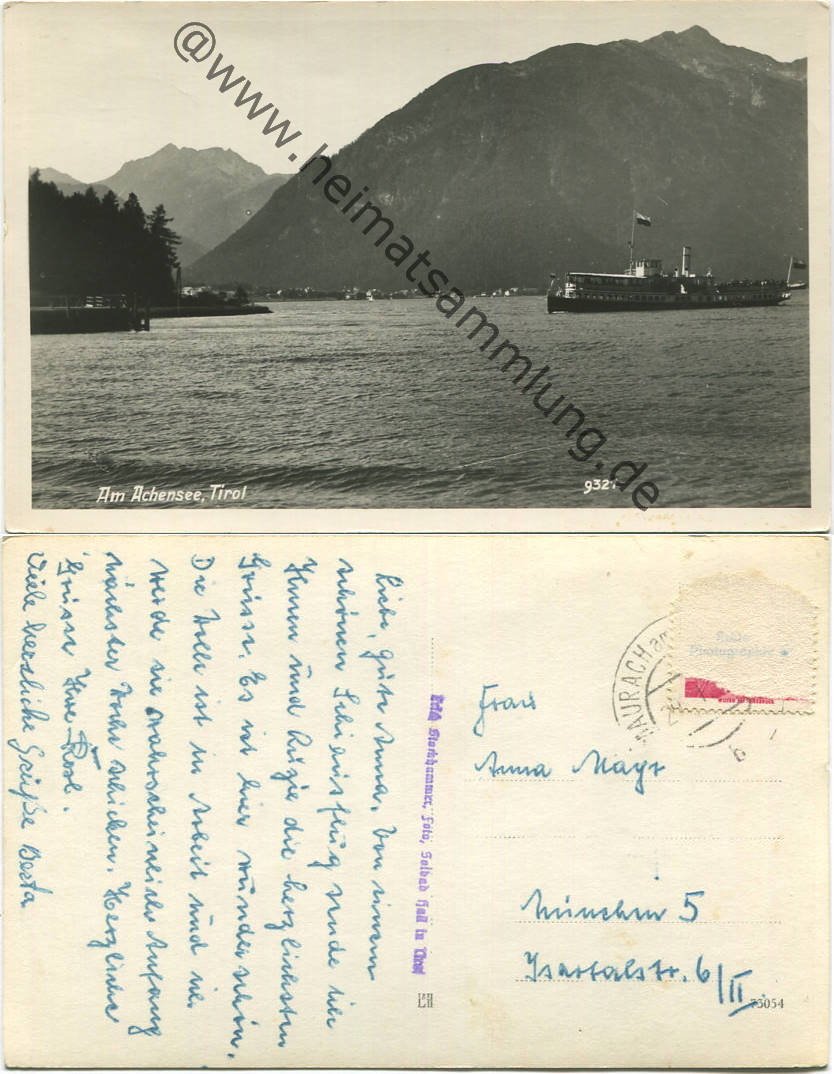 @www.heimatsammlung.de
Am Achensee, Tirol
932
Liebe, gute Anna, Von einem
schönen Schiausflug sende ich
Ihnen und die herzlichsten
Grüsse. Es ist hier wunderschön.
Die Wolle ist in Arbeit und ich
werde sie wahrscheinlich Anfang
nächster Woche schicken. Herzliche
Grüsse Ihre Rosl.
Viele herzliche Grüße Berta
Stockhammer, Foto, Solbad Hall in Tirol
MAURACH am
b
Echte
Photographie
Frau
Anna Mayr
München 5
Isartalstr. 6/II.
73054